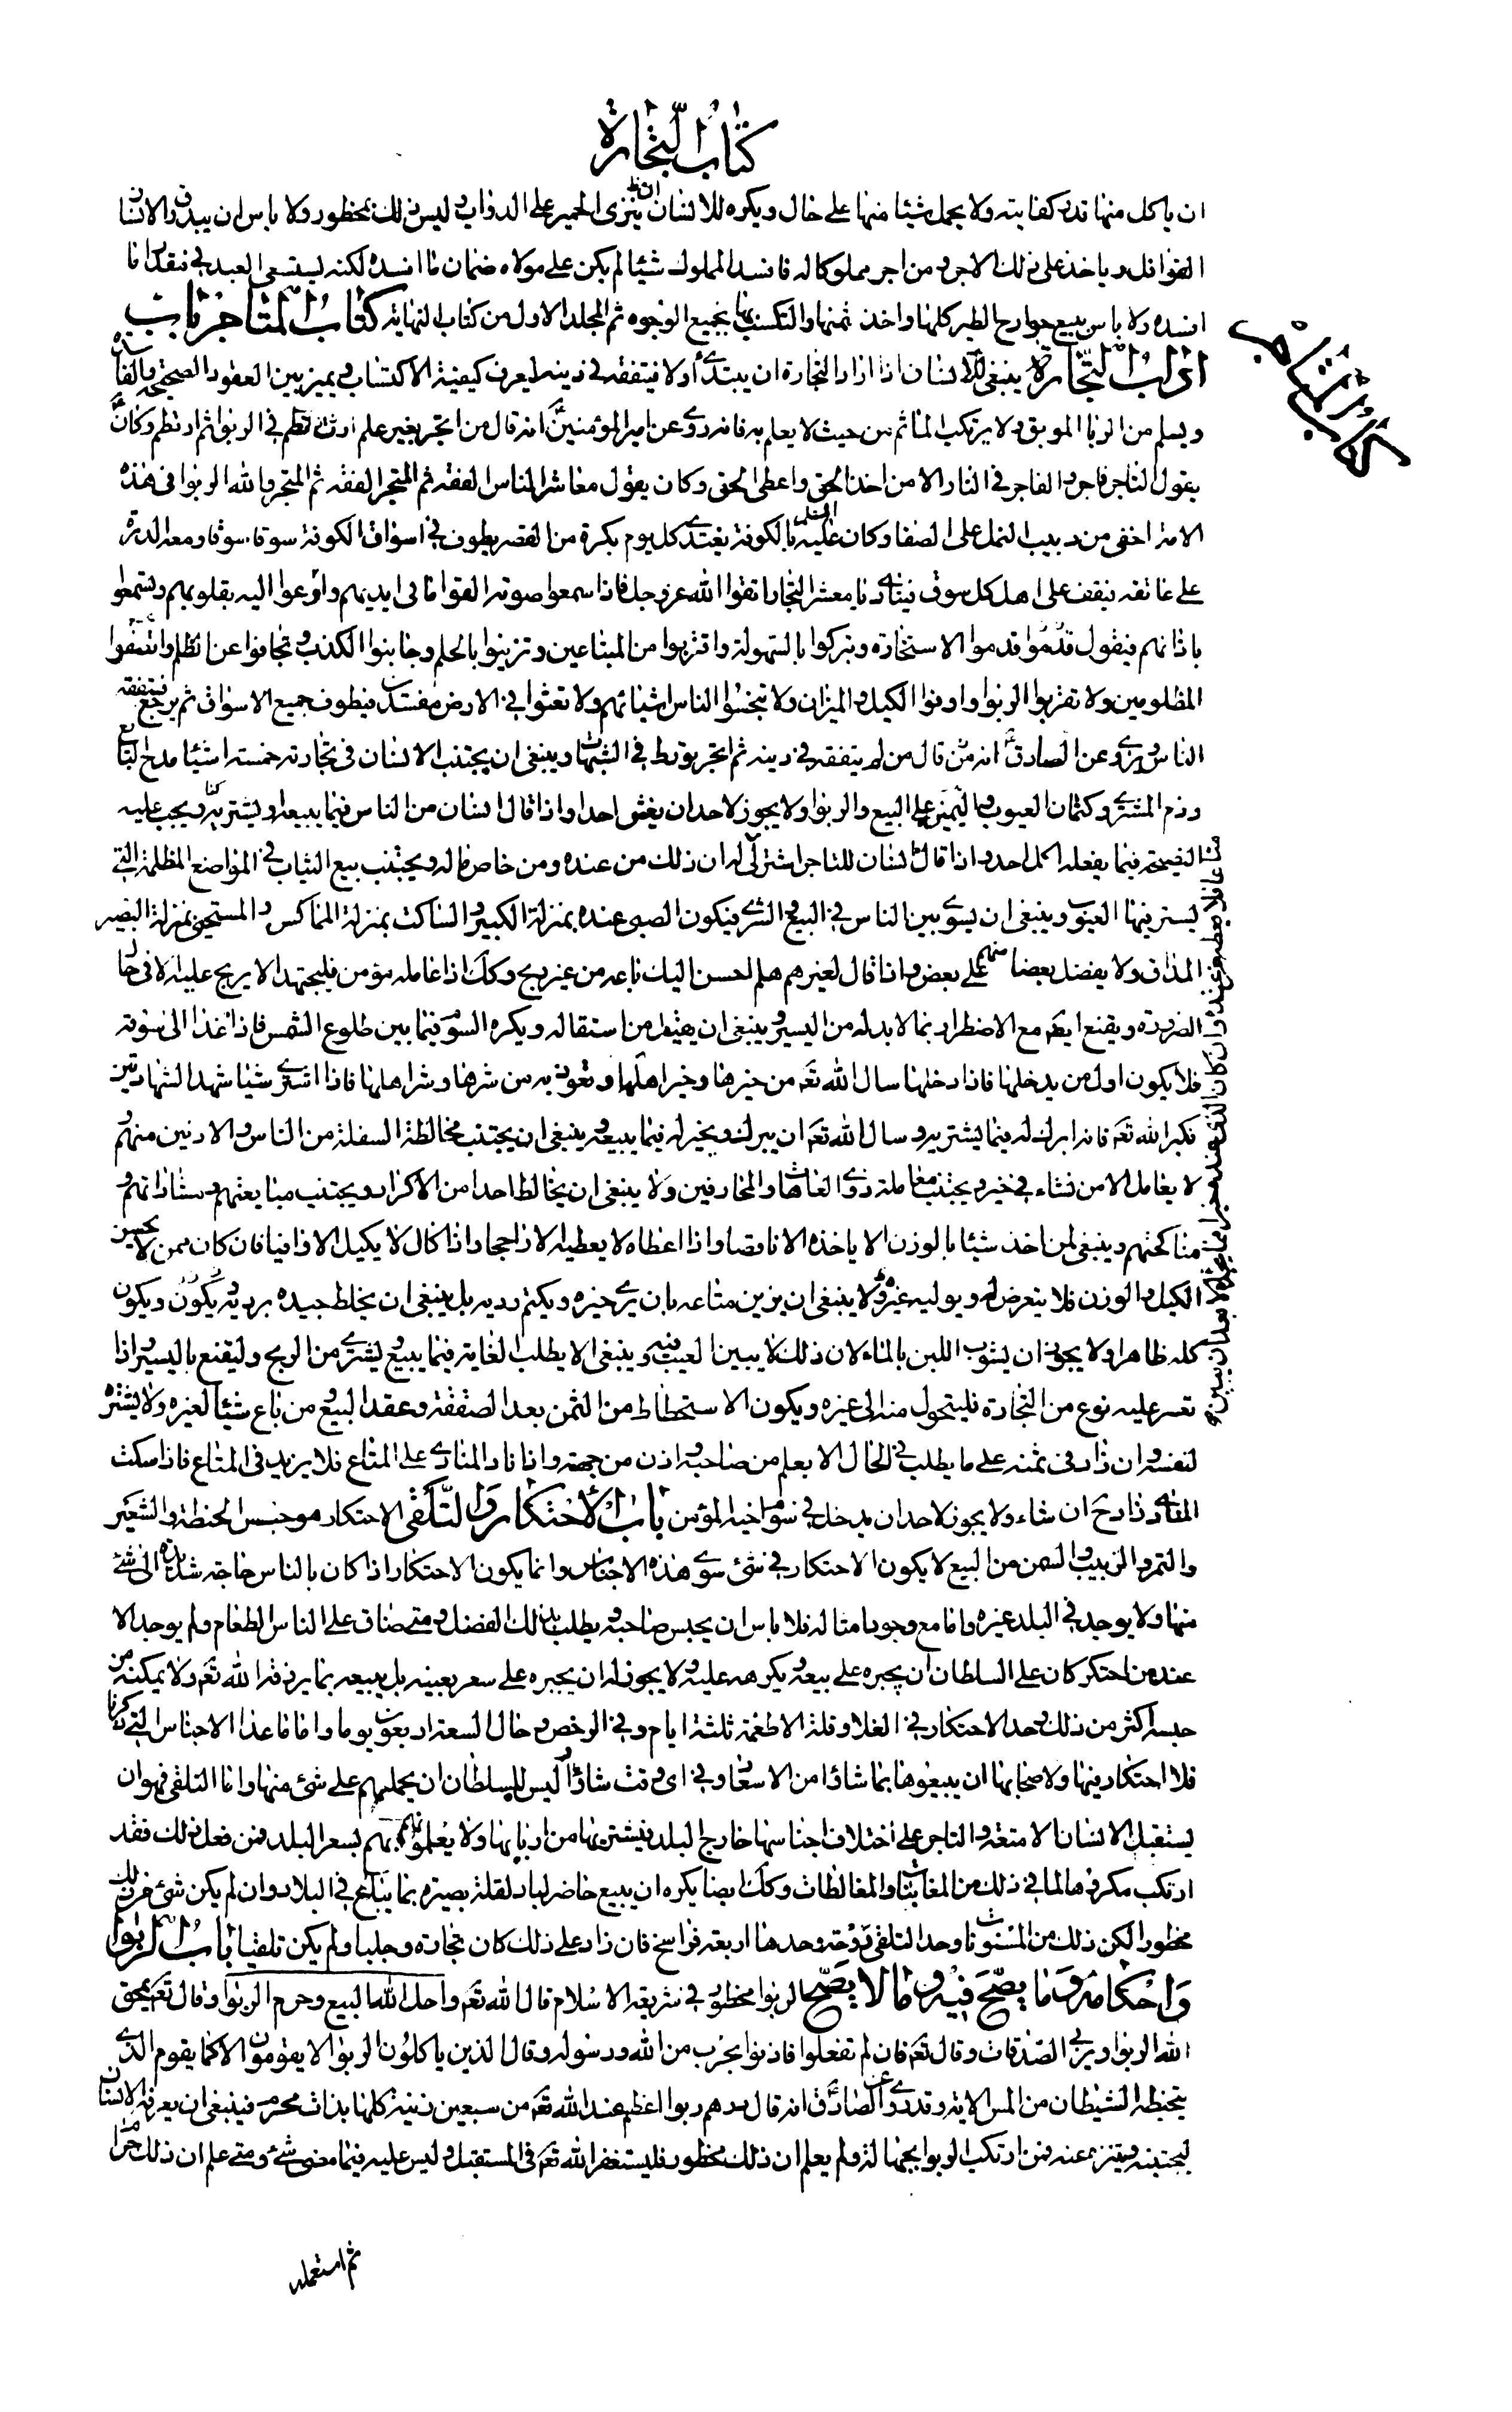 كتاب التجارة
ان ياكل منها قدر كفايته ولا يحمل شيئا منها على حال ويكره للانسان ان ينزى الحمير على الدواب وليس ذلك بمحظور ولا باس ان يبدرق الانسان
القوافل وياخذ على ذلك الاجر ومن اجر مملوكا له فافسد المملوك شيئا لم يكن على مولاه ضمان ما افسده لكنه يستسعى العبد في مقدار ما
افسده ولا باس ببيع جوارح الطير كلها واخذ ثمنها والتكسب بها بجميع الوجوه تم المجلد الاول من كتاب النهاية كتاب المتاجر باب
اداب التجارة ينبغي للانسان اذا اراد التجارة ان يبتدئ اولا فيتفقه في دينه ليعرف كيفية الاكتساب ويميز بين العقود الصحيحة والفاسدة
ويسلم من الربا الموبق ولا يرتكب الماثم من حيث لا يعلم به فانه روى عن امير المؤمنين ع انه قال من اتجر بغير علم ارتطم في الربوا ثم ارتطم وكان ع
يقول التاجر فاجر والفاجر في النار الا من اخذ الحق واعطى الحق وكان يقول معاشر الناس الفقه ثم المتجر الفقه ثم المتجر والله الربوا في هذه
الامة اخفى من دبيب النمل على الصفا وكان عليه السلم بالكوفة يغتدى كل يوم بكرة من القصر يطوف في اسواق الكوفة سوقا سوقا ومعه الدرة
على عاتقه فيقف على اهل كل سوق فينادى يا معشر التجار اتقوا الله عز وجل فاذا سمعوا صوته القوا ما في ايديهم وارعوا اليه بقلوبهم وتسمعوا
باذانهم فيقول قدموا الاستخارة وتبركوا بالسهولة واقتربوا من المبتاعين وتزينوا بالحلم وجانبوا الكذب وتجافوا عن الظلم وانصفوا
المظلومين ولا تقربوا الربوا واوفوا الكيل والميزان ولا تبخسوا الناس اشيائهم ولا تعثوا في الارض مفسدين فيطوف جميع الاسواق ثم يرجع فيتفقه
الناس وروى عن الصادق ع انه قال من لم يتفقه في دينه ثم اتجر تورط في الشبهات وينبغي ان يجتنب الانسان في تجارته خمسة اشيا مدح البايع
وذم المشترى وكتمان العيوب واليمين على البيع والربوا ولا يجوز لاحد ان يغش احدا واذا قال انسان من الناس فيما يبيعه او يشتريه ويجب عليه
النصيحة فيما يفعله لكل احد واذا قال انسان للتاجر اشتر لى له ان ذلك من عنده ومن خاص ماله ويجتنب بيع الثياب في المواضع المظلمة التي
يستر فيها العيوب وينبغي ان يسوى بين الناس في البيع والشرى فيكون الصبى عنده بمنزلة الكبير والساكت بمنزلة المماكس والمستحيى بمنزلة البصير
المداق ولا يفضل بعضا منهم على بعض واذا قال لغيرهم هلم احسن اليك باعه من غير ربح وكك اذا عامله مؤمن فليجتهد الا يربح عليه الا في حال
الضرورة ويقنع ايضا مع الاضطرار بما لا بد له من اليسير وينبغي ان يقيل من استقاله ويكره السوم فيما بين طلوع الشمس فاذا غدا الى سوقه
فلا يكون اول من يدخلها فاذا دخلها سال الله تع من خيرها وخير اهلها وتعوذ به من شرها وشر اهلها فاذا اشترى شيئا شهد الشهادتين
فكبر الله تع فانه ابرك له فيما يشتريه وسال الله تع ان يبرك ويخير له فيما يبيعه وينبغي ان يجتنب مخالطة السفلة من الناس والادنين منهم و
لا يعامل الا من نشاء في خير ويجتنب معاملة ذوى العاهات والمحارفين ولا ينبغي ان يخالط احدا من الاكراد ويجتنب مبايعتهم ومشاراتهم و
مناكحتهم وينبغي لمن اخذ شيئا بالوزن الا ياخذه الا ناقصا واذا اعطاه لا يعطيه الا راجحا واذا كال لا يكيل الا وافيا فان كان ممن لا يحسن
الكيل والوزن فلا يتعرض له ويوليه غيره ولا ينبغي ان يزين متاعه بان يرى خيره ويكتم رديه بل ينبغي ان يخلط جيده برديه ويكون
كله ظاهرا ولا يجوز ان يشوب اللبن بالماء لان ذلك لا يبين العيب فيه وينبغي الا يطلب الغاية فيما يبيع ويشترى من الربح وليقنع باليسير واذا
تعسر عليه نوع من التجارة فليتحول منه الى غيره ويكون الاستحطاط من الثمن بعد الصفقة وعقد البيع ومن باع شيئا لغيره ولا يشتره
لنفسه وان زاد في ثمنه على ما يطلب في الحال الا بعلم من صاحبه واذن من جهته واذا ناد المنادى على المتاع فلا يزيد في المتاع فاذا سكت
المنادى زاد ح ان شاء ولا يجوز لاحد ان يدخل في سوم اخيه المؤمن باب الاحتكار والتلقى الاحتكار هو حبس الحنطة والشعير
والتمر والزبيب والسمن من البيع لا يكون الاحتكار في شئ سوى هذه الاجناس وانما يكون الاحتكار اذا كان بالناس حاجة شديدة الى شئ
منها ولا يوجد في البلد غيره واما مع وجود امثاله فلا باس ان يحبس صاحبه ويطلب بذلك الفضل ومتى ضاق على الناس الطعام ولم يوجد الا
عند من احتكر كان على السلطان ان يجبره على بيعه ويكرهه عليه ولا يجوز له ان يجبره على سعر بعينه بل يبيعه بما يرزقه الله تع ولا يمكنه من
حبسه اكثر من ذلك وحد الاحتكار في الغلا وقلة الاطعمة ثلثة ايام وفي الرخص وحال السعة اربعون يوما واما ما عدا الاجناس التي ذكرنا
فلا احتكار فيها ولاصحابها ان يبيعوها بما شاؤا من الاسعار وفي اى وقت شاؤا وليس للسلطان ان يحملهم على شئ منها واما التلقى فهو ان
يستقبل الانسان الامتعة والتاجر على اختلاف اجناسها خارج البلد فيشتريها من اربابها ولا يعلمون هم بسعر البلد فمن فعل ذلك فقد
ارتكب مكروها لما في ذلك من المغابنات والمغالطات وكك ايضا يكره ان يبيع حاضر لباد لقلة بصيره بما يباع في البلاد وان لم يكن شئ من ذلك
محظورا لكن ذلك من المسنونات وحد التلقى روحة وحدها اربعة فراسخ فان زاد على ذلك كان تجارة وجلبا ولم يكن تلقيا باب الربوا
واحكامه وما يصح فيه وما لا يصح الربوا محظور في شريعة الاسلام قال الله تع واحل الله البيع وحرم الربوا وقال تع يمحق
الله الربوا ويربى الصدقات وقال تع فان لم تفعلوا فاذنوا بحرب من الله ورسوله وقال الذين ياكلون الربوا لا يقومون الا كما يقوم الذى
يتخبطه الشيطان من المس الاية وقد روى عن الصادق ع انه قال درهم ربوا اعظم عند الله تع من سبعين زنية كلها بذات محرم فينبغي ان يعرفه الانسان
ليجتنبه ويتنزه عنه فمن ارتكب الربوا بجهالة ولم يعلم ان ذلك محظور فليستغفر الله تع في المستقبل وليس عليه فيما مضى شئ ومتى علم ان ذلك حرام
ثم استعمله
كتاب المتاجر